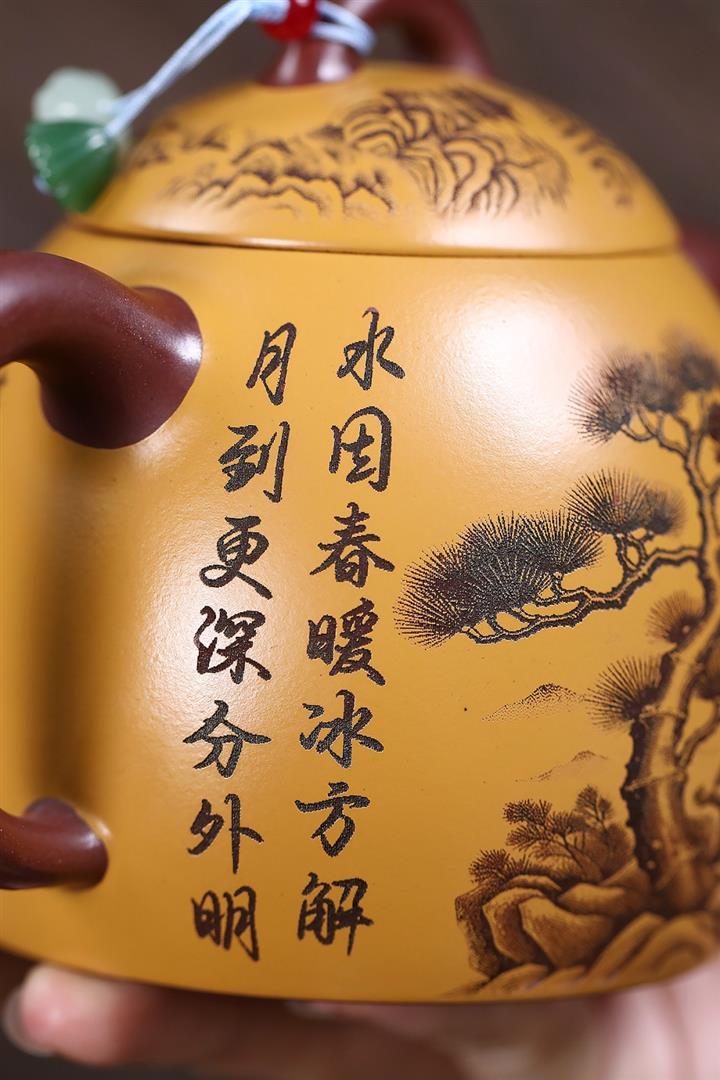 水因春暖冰方解
月到更深分外明